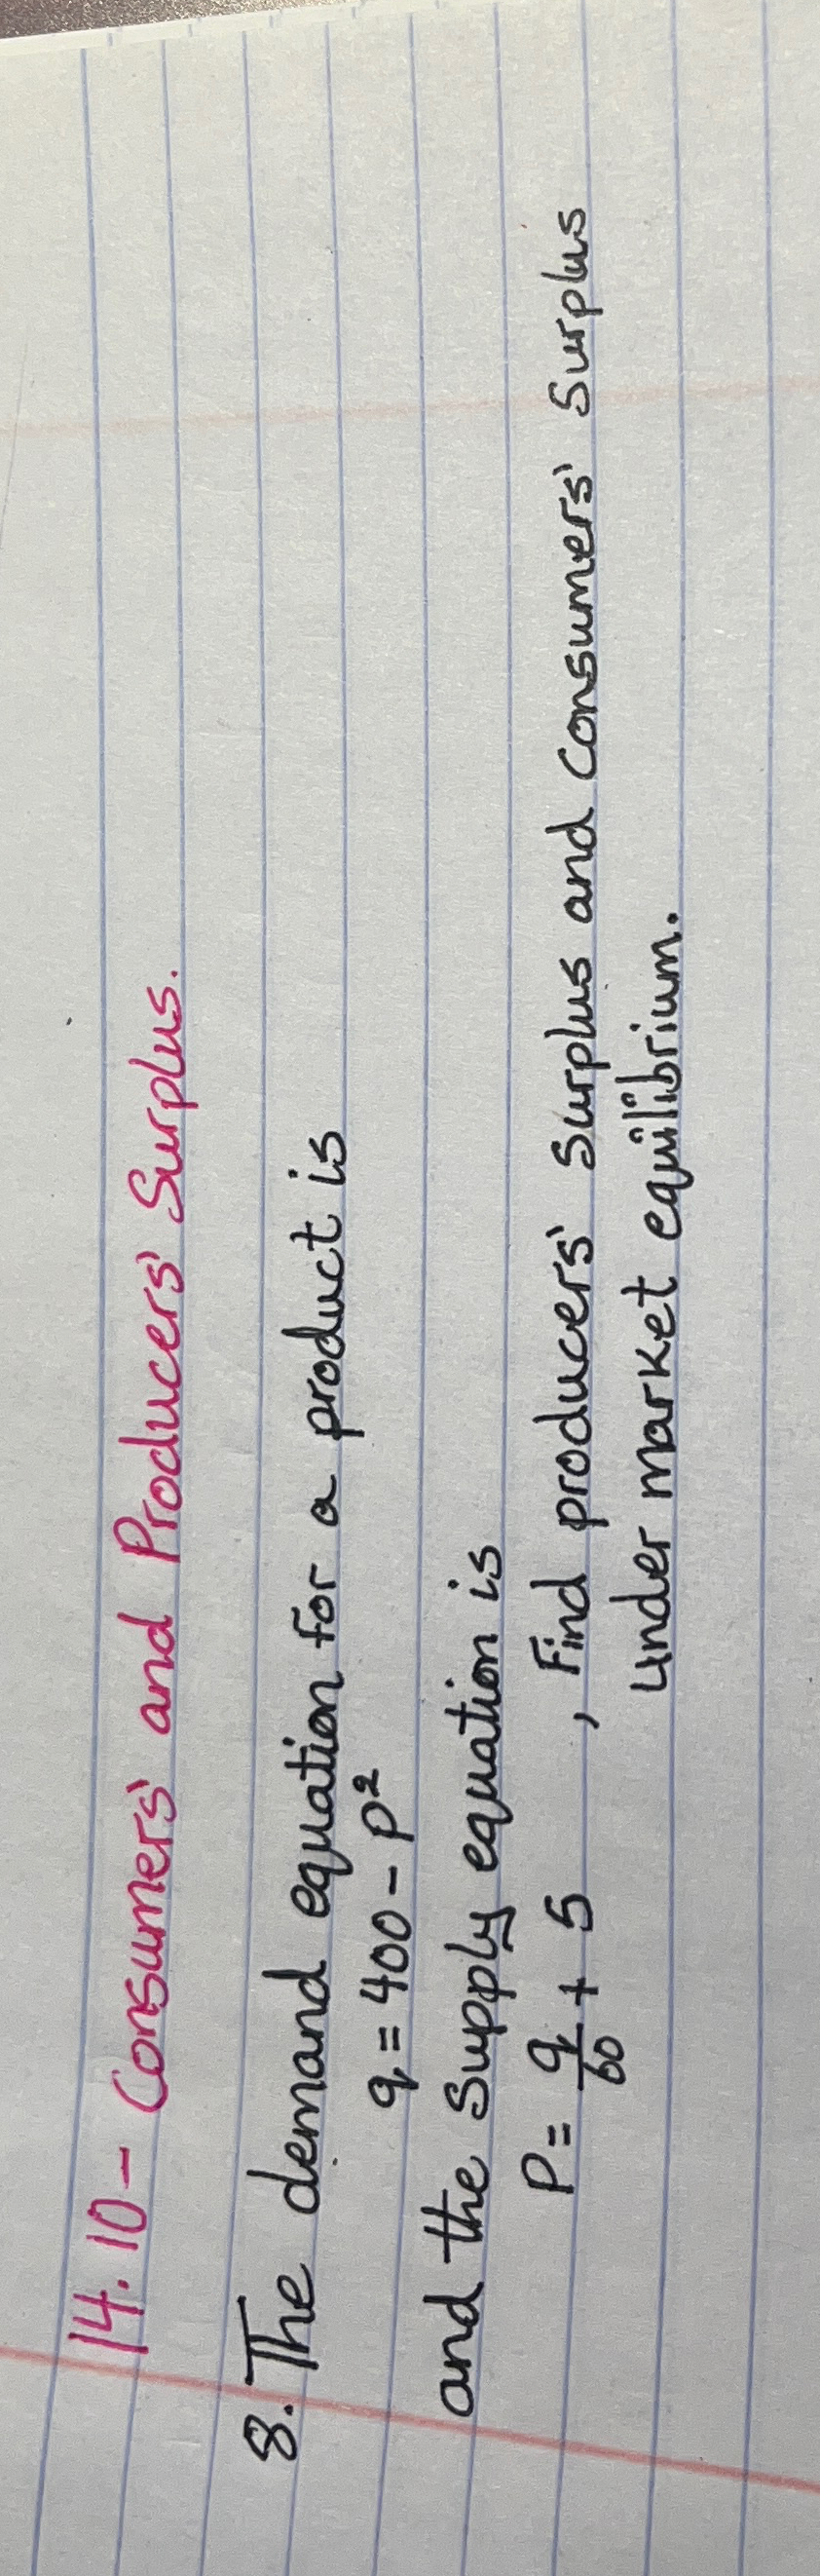 14.10- Consumers' and Producers' Surplus.
8. The demand equation for a product is
q = 400 - P²
and the supply equation is
P = q/60 + 5 , Find producers' surplus and consumers' surplus
under market equilibrium.